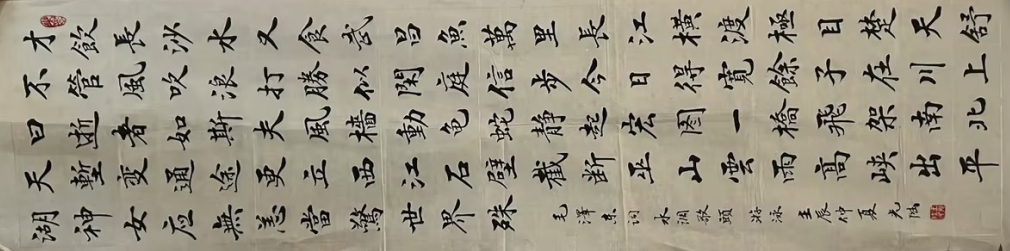 才飲長沙水又食武昌魚萬里長江橫渡極目楚天舒
不管風吹浪打勝似閑庭信步今日得寬餘子在川上
曰逝者如斯夫風檣動龟蛇静起宏图一橋飛架南北
天塹變通途更立西江石壁截断巫山雲雨高峡出平
湖神女应無恙當驚世界殊 毛澤东词水调歌頭游泳壬辰仲夏光